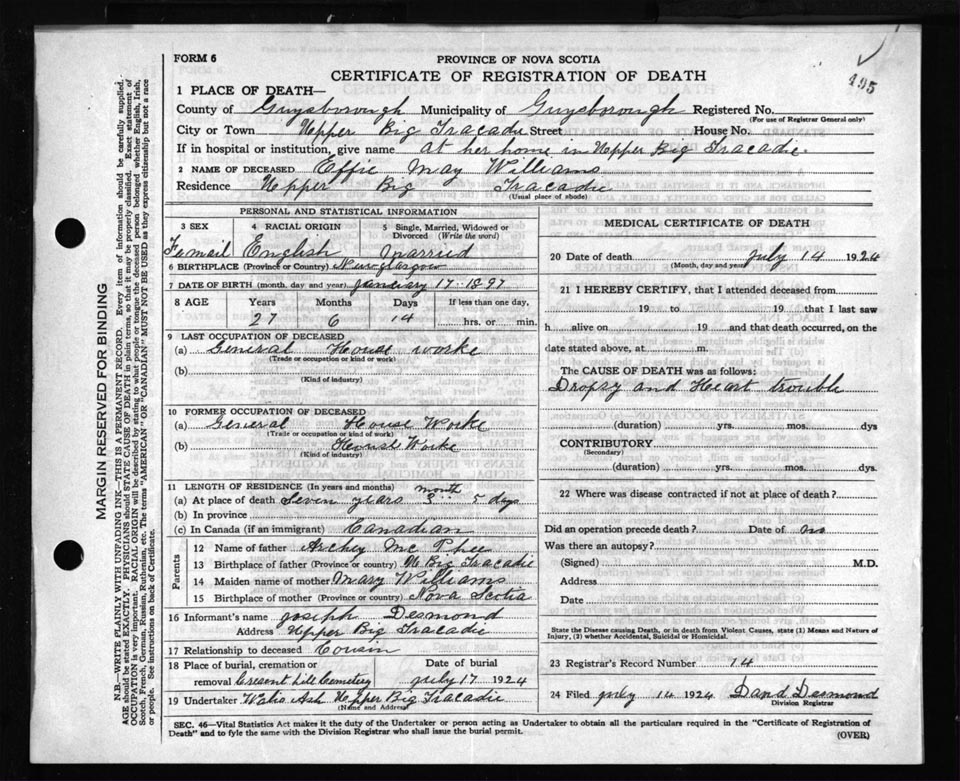 FORM 6
PROVINCE OF NOVA SCOTIA
CERTIFICATE OF REGISTRATION OF DEATH
195
1 PLACE OF DEATH—
County of Guysborough Municipality of Guysborough Registered No.
(For use of Registrar General only)
City or Town Upper Big Tracadie Street House No.
If in hospital or institution, give name At her home in Upper Big Tracadie
2 NAME OF DECEASED Effie May Williams
Residence Upper Big Tracadie
(Usual place of abode)
PERSONAL AND STATISTICAL INFORMATION
3 SEX 4 RACIAL ORIGIN 5 Single, Married, Widowed or Divorced (Write the word)
Femail English Married
6 BIRTHPLACE (Province or Country) New glasgow
7 DATE OF BIRTH (month, day and year) January 17-1897
8 AGE Years Months Days If less than one day,
27 6 14 hrs. or min.
9 LAST OCCUPATION OF DECEASED
(a) General House worke
(Trade or occupation or kind of work)
(b)
(Kind of industry)
10 FORMER OCCUPATION OF DECEASED
(a) General House Worke
(Trade or occupation or kind of work)
(b) House Worke
(Kind of industry)
11 LENGTH OF RESIDENCE (In years and months) month
(a) At place of death Seven years 3 5 days
(b) In province
(c) In Canada (if an immigrant) Canadian
Parents
12 Name of father Archey Mc Phee
13 Birthplace of father (Province or country) U Big Tracadie
14 Maiden name of mother Mary Williams
15 Birthplace of mother (Province or country) Nova Scotia
16 Informant's name Joseph Desmond
Address Upper Big Tracadie
17 Relationship to deceased Cousin
18 Place of burial, cremation or Date of burial
removal Cresent hill Cemetery July 17 1924
19 Undertaker Ash Upper Big Tracadie
(Name and Address)
MEDICAL CERTIFICATE OF DEATH
20 Date of death July 14 1924
(Month, day and year)
21 I HEREBY CERTIFY, that I attended deceased from
19 to 19 that I last saw
h alive on 19 and that death occurred, on the
date stated above, at m.
The CAUSE OF DEATH was as follows:
Dropsy and Heart trouble
(duration) yrs. mos. dys
CONTRIBUTORY
(Secondary)
(duration) yrs. mos. dys.
22 Where was disease contracted if not at place of death?
Did an operation precede death? Date of no
Was there an autopsy?
(Signed) M.D.
Address
Date
State the Disease causing Death, or in death from Violent Causes, state (1) Means and Nature of
Injury, (2) whether Accidental, Suicidal or Homicidal.
23 Registrar's Record Number 14
24 Filed July 14 1924 David Desmond
Division Registrar
SEC. 46—Vital Statistics Act makes it the duty of the Undertaker or person acting as Undertaker to obtain all the particulars required in the "Certificate of Registration of
Death" and to file the same with the Division Registrar who shall issue the burial permit.
(OVER)
MARGIN RESERVED FOR BINDING
N.B.—WRITE PLAINLY WITH UNFADING INK—THIS IS A PERMANENT RECORD. Every item of information should be carefully supplied.
AGE should be stated EXACTLY. PHYSICIANS should STATE CAUSE OF DEATH in plain terms, so that it may be properly classified. Exact statement of
OCCUPATION is very important. RACIAL ORIGIN will be described by stating to what people or tongue the deceased person belonged whether English, Irish,
Scotch, French, German, Russian, Ruthenian, etc. The terms "AMERICAN" OR "CANADIAN" MUST NOT BE USED as they express citizenship but not a race
or people. See instructions on back of Certificate.